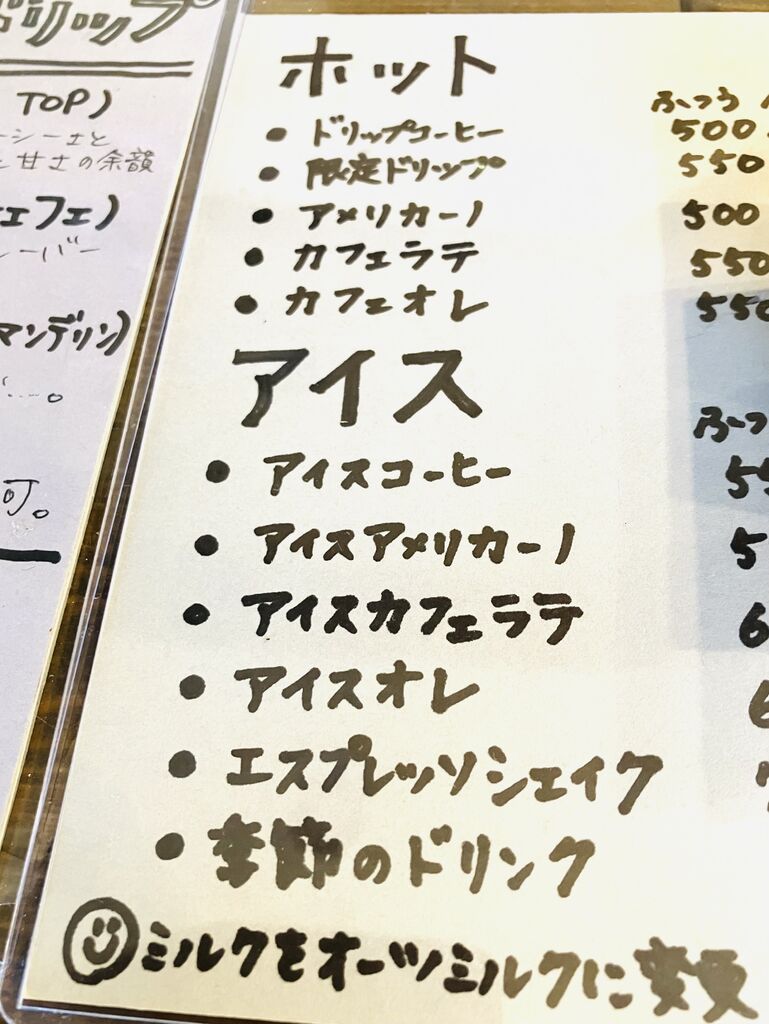 ドリップ
TOP)
ーシーさと
と甘さの余韻
ェフェ)
レーバー
マンデリン)
可。
ホット
ふつう
● ドリップコーヒー 500
● 限定ドリップ 550
● アメリカーノ 500
● カフェラテ 550
● カフェオレ 550
アイス
ふつ
● アイスコーヒー 55
● アイスアメリカーノ 5
● アイスカフェラテ 6
● アイスオレ 6
● エスプレッソシェイク 7
● 季節のドリンク
ミルクをオーツミルクに変更